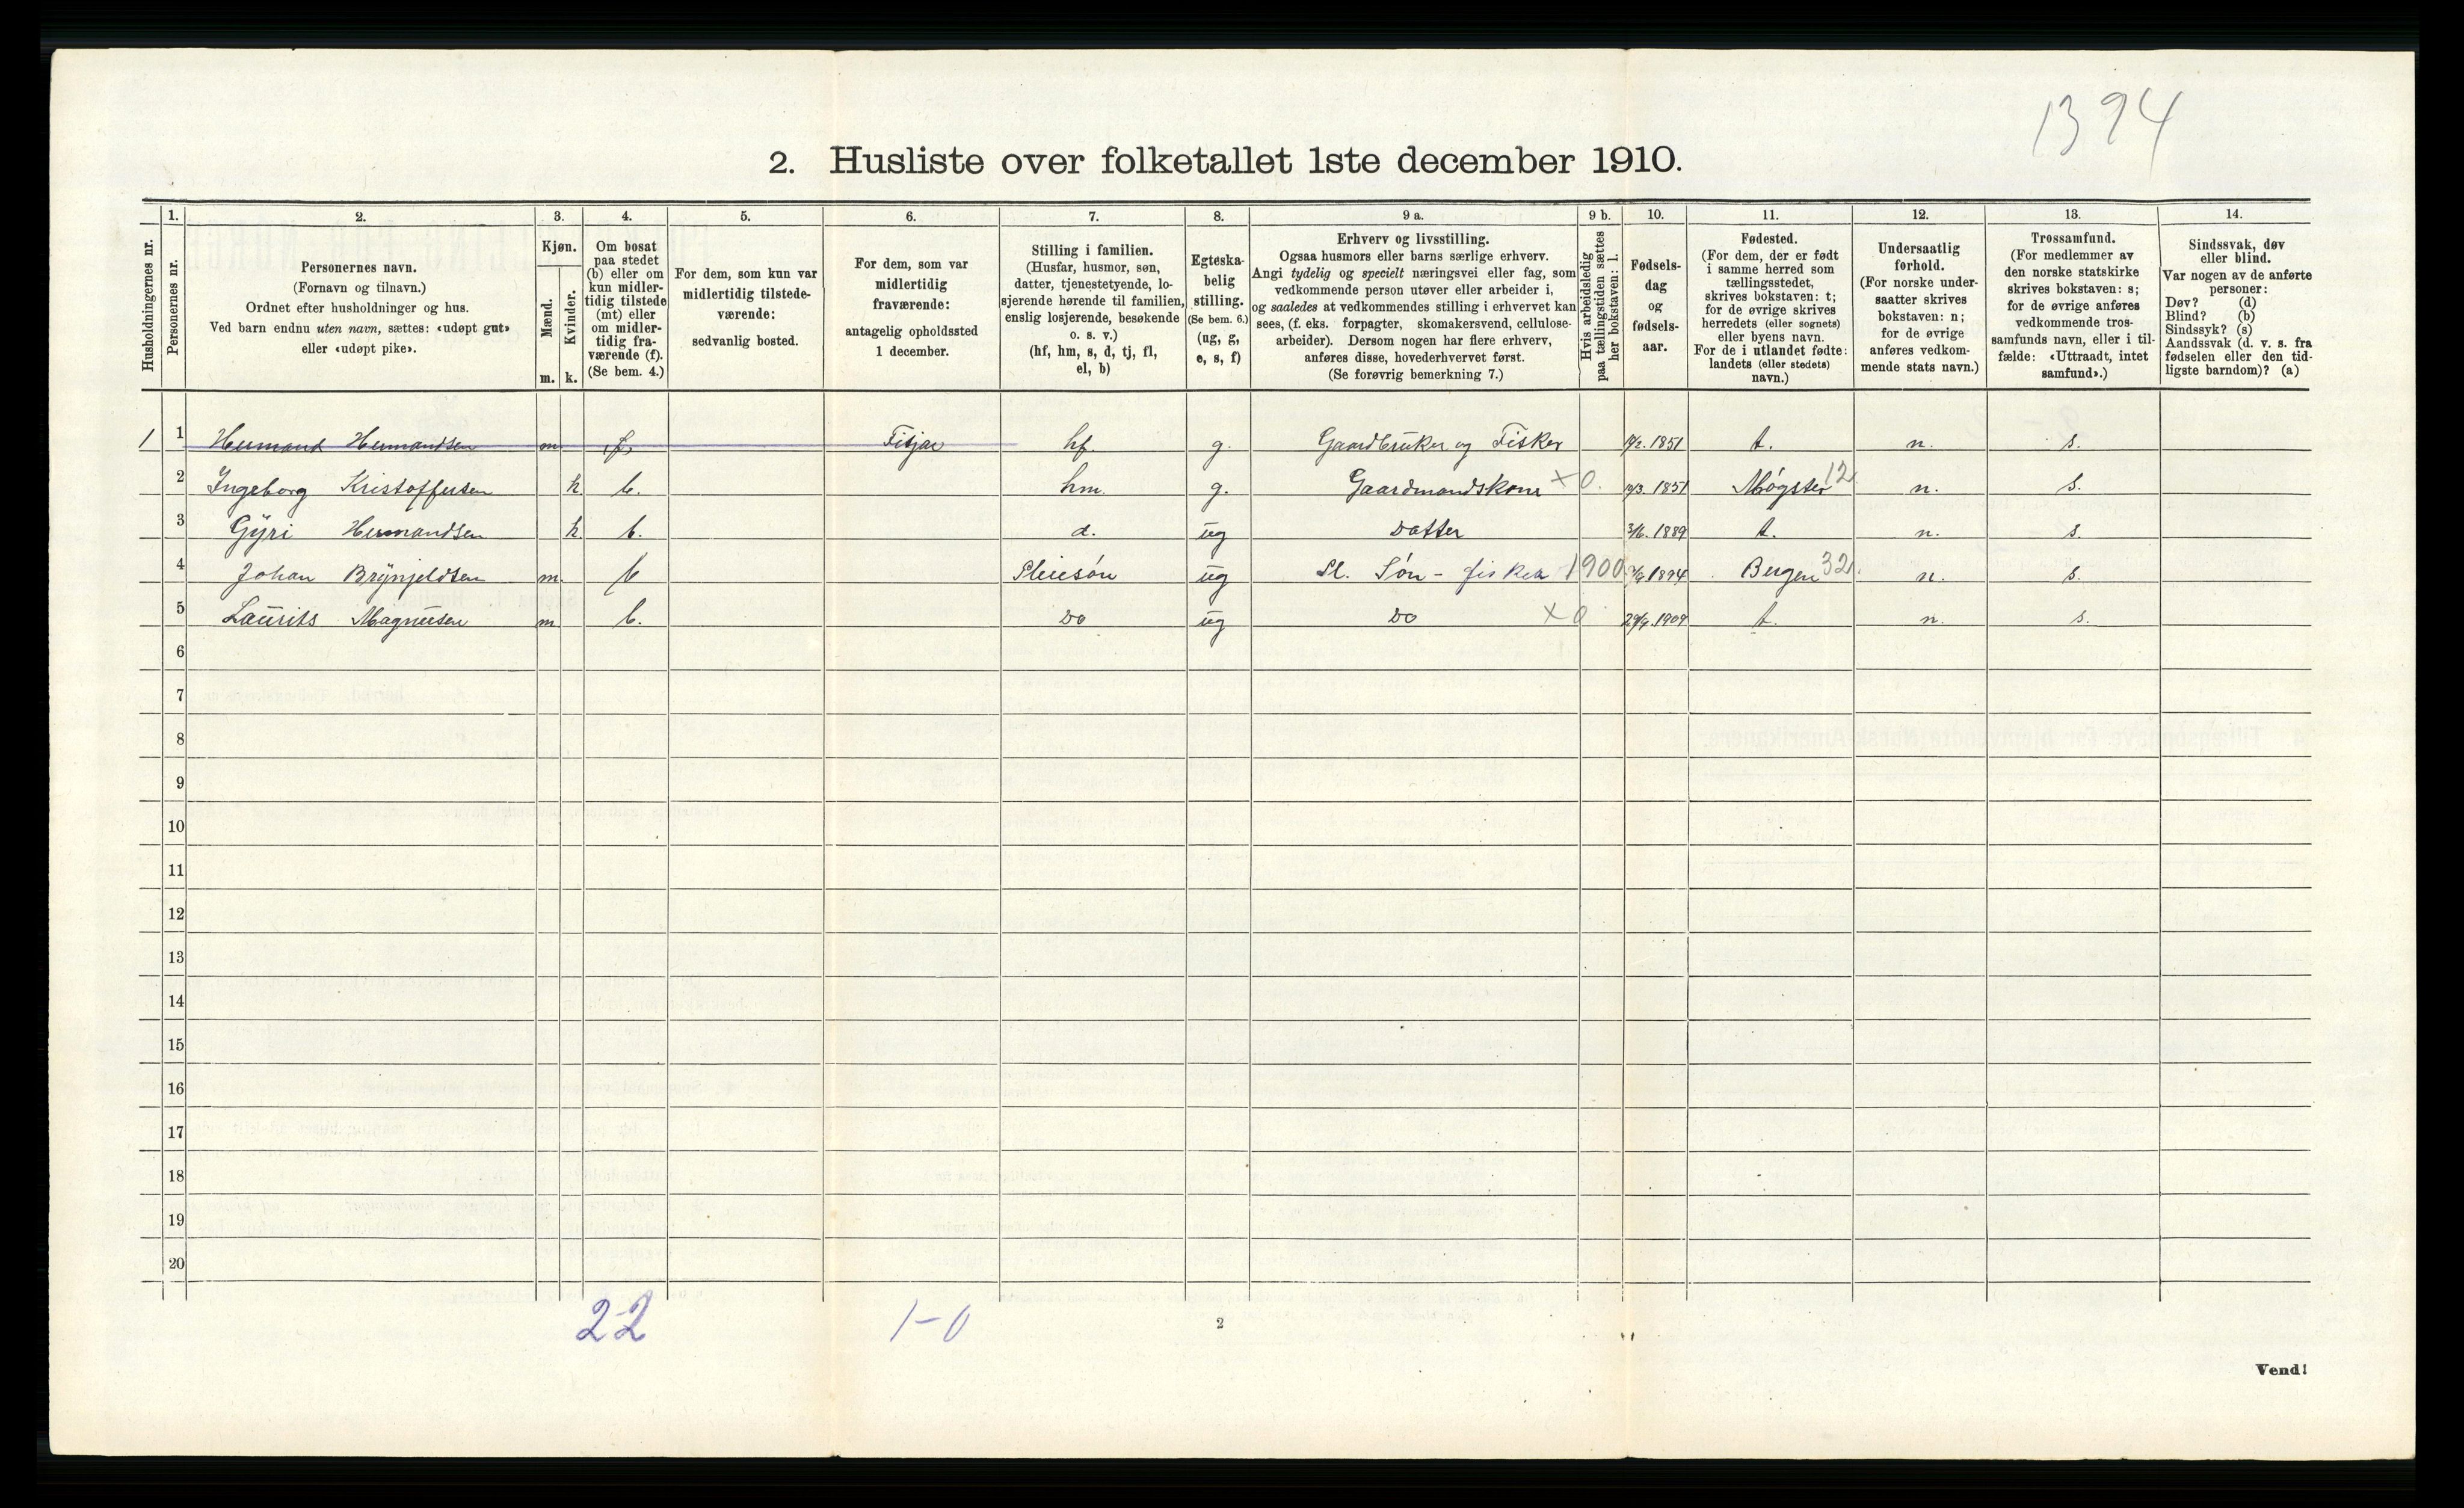 1394
2. Husliste over folketallet 1ste december 1910.
Husholdningernes nr.
1.
Personernes nr.
2.
Personernes navn.
(Fornavn og tilnavn.)
Ordnet efter husholdninger og hus.
Ved barn endnu uten navn, sættes: «udøpt gut»
eller «udøpt pike».
3.
Kjøn.
Mænd.
m.
Kvinder.
k.
4.
Om bosat
paa stedet
(b) eller om
kun midler-
tidig tilstede
(mt) eller
om midler-
tidig fra-
værende (f).
(Se bem. 4.)
5.
For dem, som kun var
midlertidig tilstede-
værende:
sedvanlig bosted.
6.
For dem, som var
midlertidig
fraværende:
antagelig opholdssted
1 december.
7.
Stilling i familien.
(Husfar, husmor, søn,
datter, tjenestetyende, lo-
sjerende hørende til familien,
enslig losjerende, besøkende
o. s. v.)
(hf, hm, s, d, tj, fl,
el, b)
8.
Egteska-
belig
stilling.
(Se bem. 6.)
(ug, g,
e, s, f)
9 a.
Erhverv og livsstilling.
Ogsaa husmors eller barns særlige erhverv.
Angi tydelig og specielt næringsvei eller fag, som
vedkommende person utøver eller arbeider i,
og saaledes at vedkommendes stilling i erhvervet kan
sees, (f. eks. forpagter, skomakersvend, cellulose-
arbeider). Dersom nogen har flere erhverv,
anføres disse, hovederhvervet først.
(Se forøvrig bemerkning 7.)
9 b.
Hvis arbeidsledig
paa tællingstiden sættes
her bokstaven: l.
10.
Fødsels-
dag
og
fødsels-
aar.
11.
Fødested.
(For dem, der er født
i samme herred som
tællingsstedet,
skrives bokstaven: t;
for de øvrige skrives
herredets (eller sognets)
eller byens navn.
For de i utlandet fødte:
landets (eller stedets)
navn.)
12.
Undersaatlig
forhold.
(For norske under-
saatter skrives
bokstaven: n;
for de øvrige
anføres vedkom-
mende stats navn.)
13.
Trossamfund.
(For medlemmer av
den norske statskirke
skrives bokstaven: s;
for de øvrige anføres
vedkommende tros-
samfunds navn, eller i til-
fælde: «Uttraadt, intet
samfund».)
14.
Sindssvak, døv
eller blind.
Var nogen av de anførte
personer:
Døv? (d)
Blind? (b)
Sindssyk? (s)
Aandssvak (d. v. s. fra
fødselen eller den tid-
ligste barndom)? (a)
1 1 Hermand Hermandsen m. f. Fitjar hf. g. Gaardbruker og Fisker 1851 t. n. s.
2 Ingeborg Kristoffersen k. b. hm. g. Gaardmandskone x 0. 1851 Møgster 12 n. s.
3 Gyri Hermandsen k. b. d. ug Datter 3/6. 1889 t. n. s.
4 Johan Brynjeldsen m. b Pleiesøn ug Pl. Søn - fisker 1900 1894 Bergen 32 n. s.
5 Laurits Magnussen m b. Do ug Do x 0 1909 t. n. s.
6
7
8
9
10
11
12
13
14
15
16
17
18
19
20
22 1-0
2
Vend!